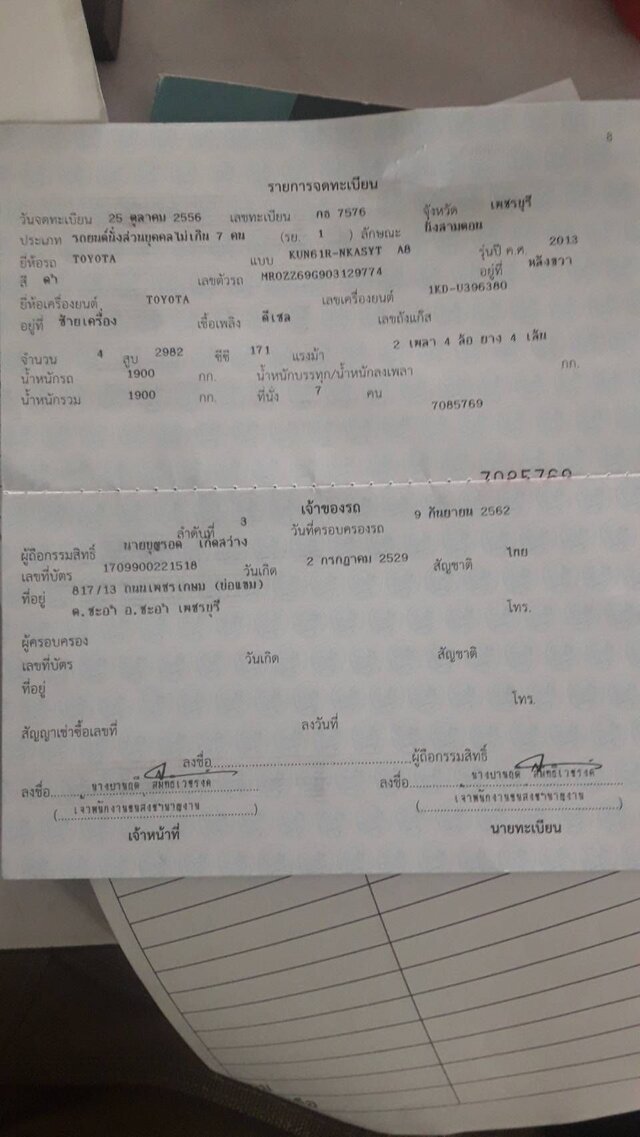 8
รายการจดทะเบียน
วันจดทะเบียน 25 ตุลาคม 2556 เลขทะเบียน กธ 7576 จังหวัด เพชรบุรี
ประเภท รถยนต์นั่งส่วนบุคคลไม่เกิน 7 คน (รย. 1 ) ลักษณะ นั่งสามตอน
ยี่ห้อรถ TOYOTA แบบ KUN61R-NKASYT A8 รุ่นปี ค.ศ 2013
สี ดำ เลขตัวรถ MR0ZZ69G903129774 อยู่ที่ หลังขวา
ยี่ห้อเครื่องยนต์ TOYOTA เลขเครื่องยนต์ 1KD-U396380
อยู่ที่ ซ้ายเครื่อง เชื้อเพลิง ดีเซล เลขถังแก๊ส
จำนวน 4 สูบ 2982 ซีซี 171 แรงม้า 2 เพลา 4 ล้อ ยาง 4 เส้น
น้ำหนักรถ 1900 กก. น้ำหนักบรรทุก/น้ำหนักลงเพลา กก.
น้ำหนักรวม 1900 กก. ที่นั่ง 7 คน
7085769
7085769
เจ้าของรถ
ลำดับที่ 3 วันที่ครอบครองรถ 9 กันยายน 2562
ผู้ถือกรรมสิทธิ์ นายบุญรอด เกิดสว่าง
เลขที่บัตร 1709900221518 วันเกิด 2 กรกฎาคม 2529 สัญชาติ ไทย
ที่อยู่ 817/13 ถนนเพชรเกษม (บ่อแขม)
ต.ชะอำ อ.ชะอำ เพชรบุรี โทร.
ผู้ครอบครอง
เลขที่บัตร วันเกิด สัญชาติ
ที่อยู่
โทร.
สัญญาเช่าซื้อเลขที่ ลงวันที่
ลงชื่อ ผู้ถือกรรมสิทธิ์
ลงชื่อ ลงชื่อ
(เจ้าพนักงานขนส่งชำนาญงาน) (เจ้าพนักงานขนส่งชำนาญงาน)
เจ้าหน้าที่ นายทะเบียน